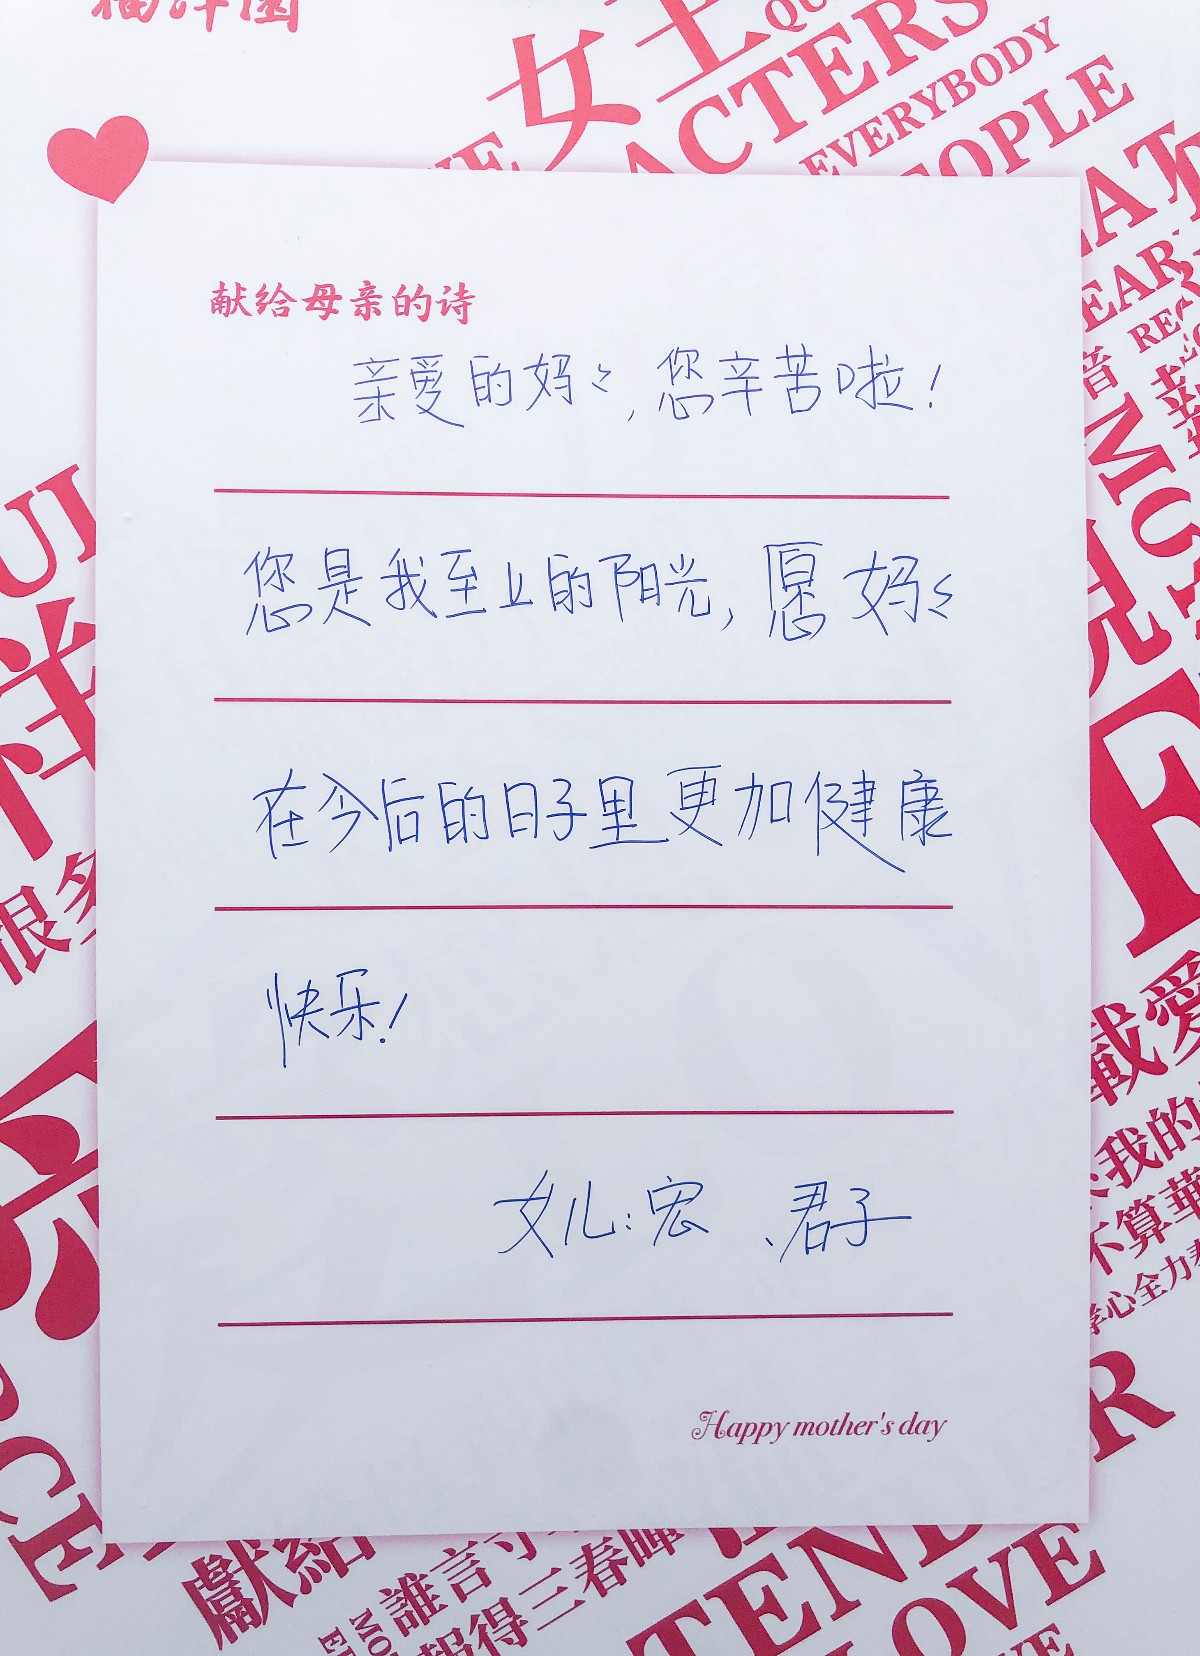 女士
ACTERS
EVERYBODY
献给母亲的诗
亲爱的妈々,您辛苦啦!
您是我至上的阳光,愿妈々
在今后的日子里更加健康
快乐!
女儿:宏、君子
Happy mother's day
很多
載愛
我的
不算華
心全力
獻給
誰言寸
報得三春暉
TENDER
LOVE